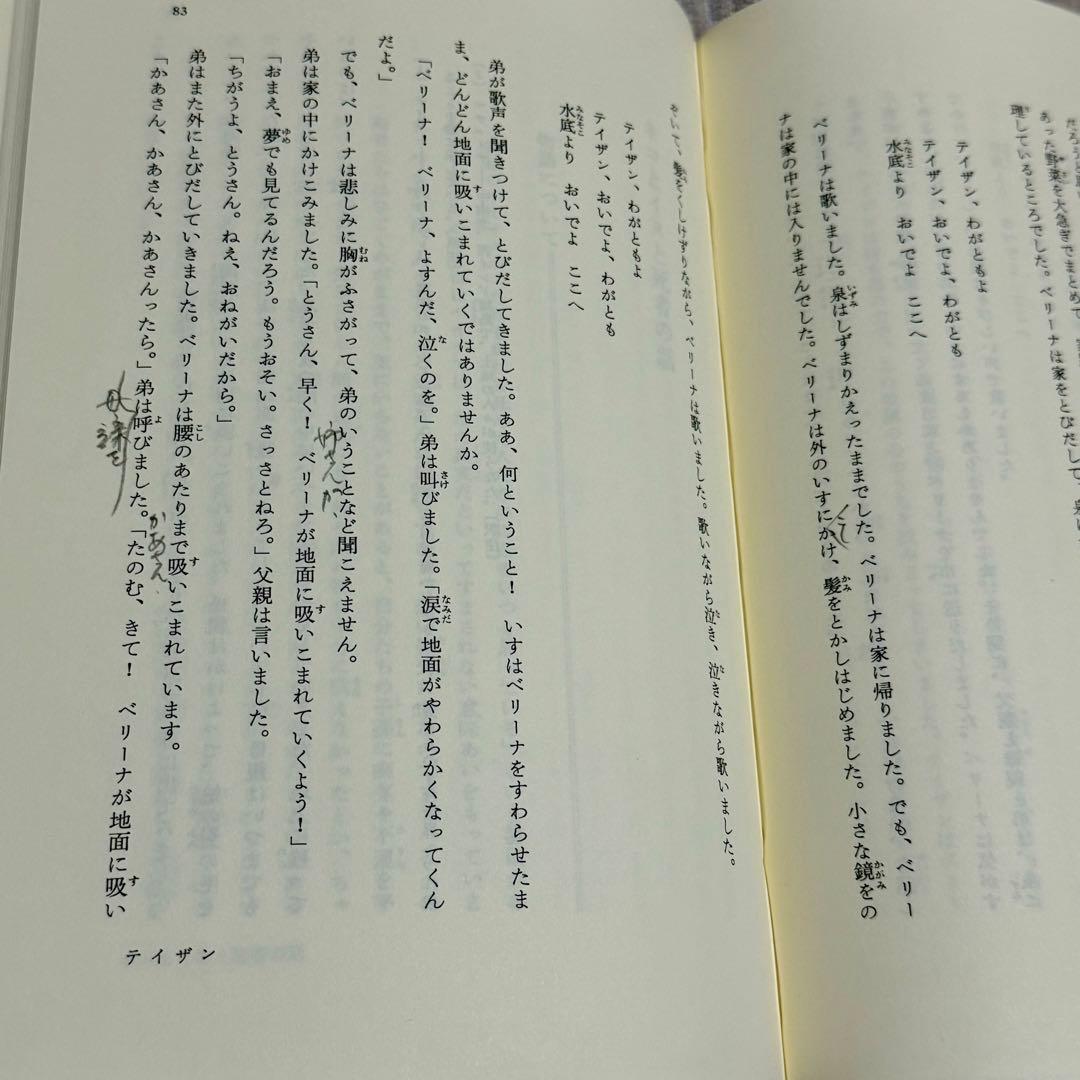 あった野菜を大急ぎでまとめて、
理しているところでした。ベリーナは家をとびだして、
テイザン、わがともよ
テイザン、おいでよ、わがとも
水底より　おいでよ　ここへ
ベリーナは歌いました。泉はしずまりかえったままでした。ベリーナは家に帰りました。でも、ベリー
ナは家の中には入りませんでした。ベリーナは外のいすにかけ、髪をとかしはじめました。小さな鏡をの
ぞいて、髪をくしけずりながら、ベリーナは歌いました。歌いながら泣き、泣きながら歌いました。
テイザン、わがともよ
テイザン、おいでよ、わがとも
水底より　おいでよ　ここへ
弟が歌声を聞きつけて、とびだしてきました。ああ、何ということ！　いすはベリーナをすわらせたま
ま、どんどん地面に吸いこまれていくではありませんか。
「ベリーナ！　ベリーナ、よすんだ、泣くのを。」弟は叫びました。「涙で地面がやわらかくなってくん
だよ。」
でも、ベリーナは悲しみに胸がふさがって、弟のいうことなど聞こえません。
弟は家の中にかけこみました。「とうさん、早く！　ベリーナが地面に吸いこまれていくよう！」
姉さんが、
「おまえ、夢でも見てるんだろう。もうおそい。さっさとねろ。」父親は言いました。
「ちがうよ、とうさん。ねえ、おねがいだから。」
弟はまた外にとびだしていきました。ベリーナは腰のあたりまで吸いこまれています。
「かあさん、かあさん、かあさんったら。」弟は呼びました。「たのむ、きて！　ベリーナが地面に吸い
かあさん、
テイザン
83